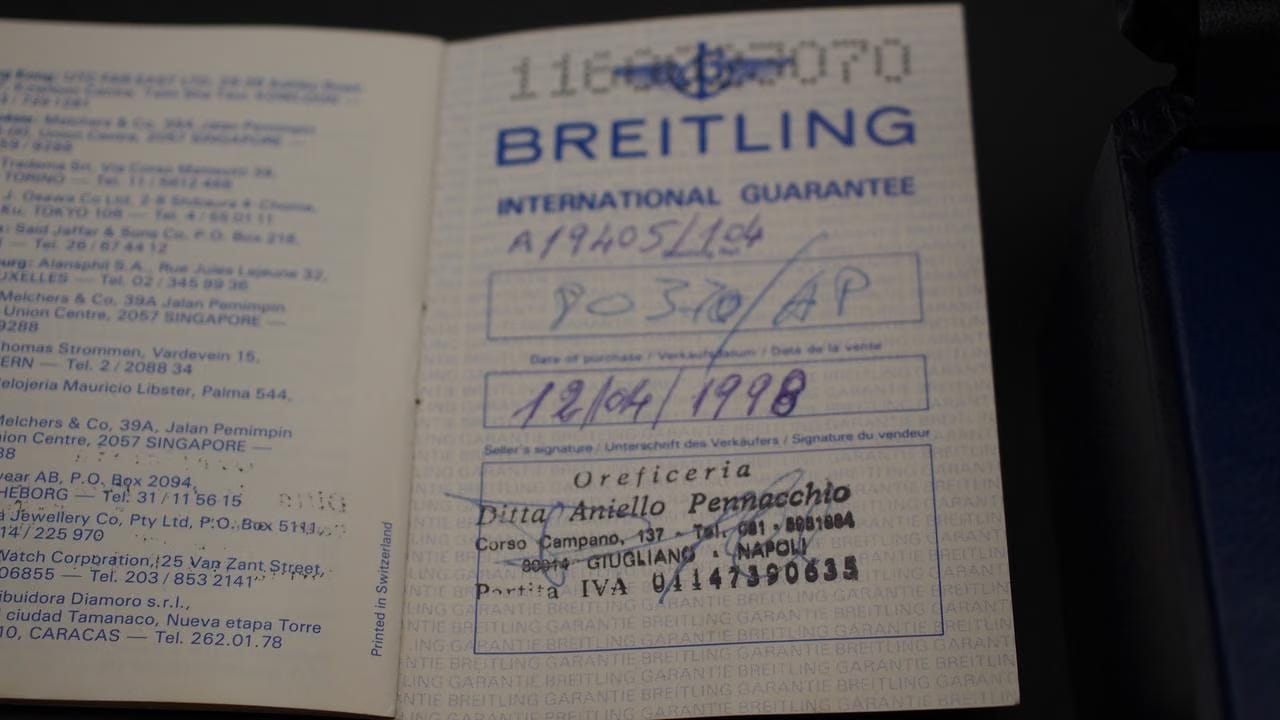 Melchers & Co, 39A Jalan Pemimpin
TORINO — Tel. 11 / 5612 468
J. Osawa Co Ltd, 2-8 Shibaura 4-Chome,
Ku, TOKYO 108 — Tel. 4 / 55 01 11
Said Jaffar & Sons Co. P.O. Box 216,
Tel. 26 / 67 44 12
Alansphil S.A., Rue Jules Lejeune 32,
UXELLES — Tel. 02 / 345 99 36
Melchers & Co, 39A Jalan Pemimpin
Union Centre, 2057 SINGAPORE —
9288
homas Strommen, Vardevein 15,
ERN — Tel. 2 / 2088 34
elojeria Mauricio Libster, Palma 544,
Melchers & Co, 39A, Jalan Pemimpin
ion Centre, 2057 SINGAPORE —
88
year AB, P.O. Box 2094,
HEBORG — Tel. 31 / 11 56 15
a Jewellery Co, Pty Ltd, P.O. Box 5111,
14 / 225 970
Watch Corporation, 25 Van Zant Street,
06855 — Tel. 203 / 853 2141
ibuidora Diamoro s.r.l.,
ciudad Tamanaco, Nueva etapa Torre
10, CARACAS — Tel. 262.01.78
Printed in Switzerland
BREITLING
INTERNATIONAL GUARANTEE
A19405/104
80370/AP
Date of purchase / Verkaufsdatum / Date de la vente
12/04/1998
Seller's signature / Unterschrift des Verkäufers / Signature du vendeur
Oreficeria
Ditta Aniello Pennacchio
Corso Campano, 137 - Tel. 081 - 8951884
80014 GIUGLIANO - NAPOLI
Partita IVA 01147390635